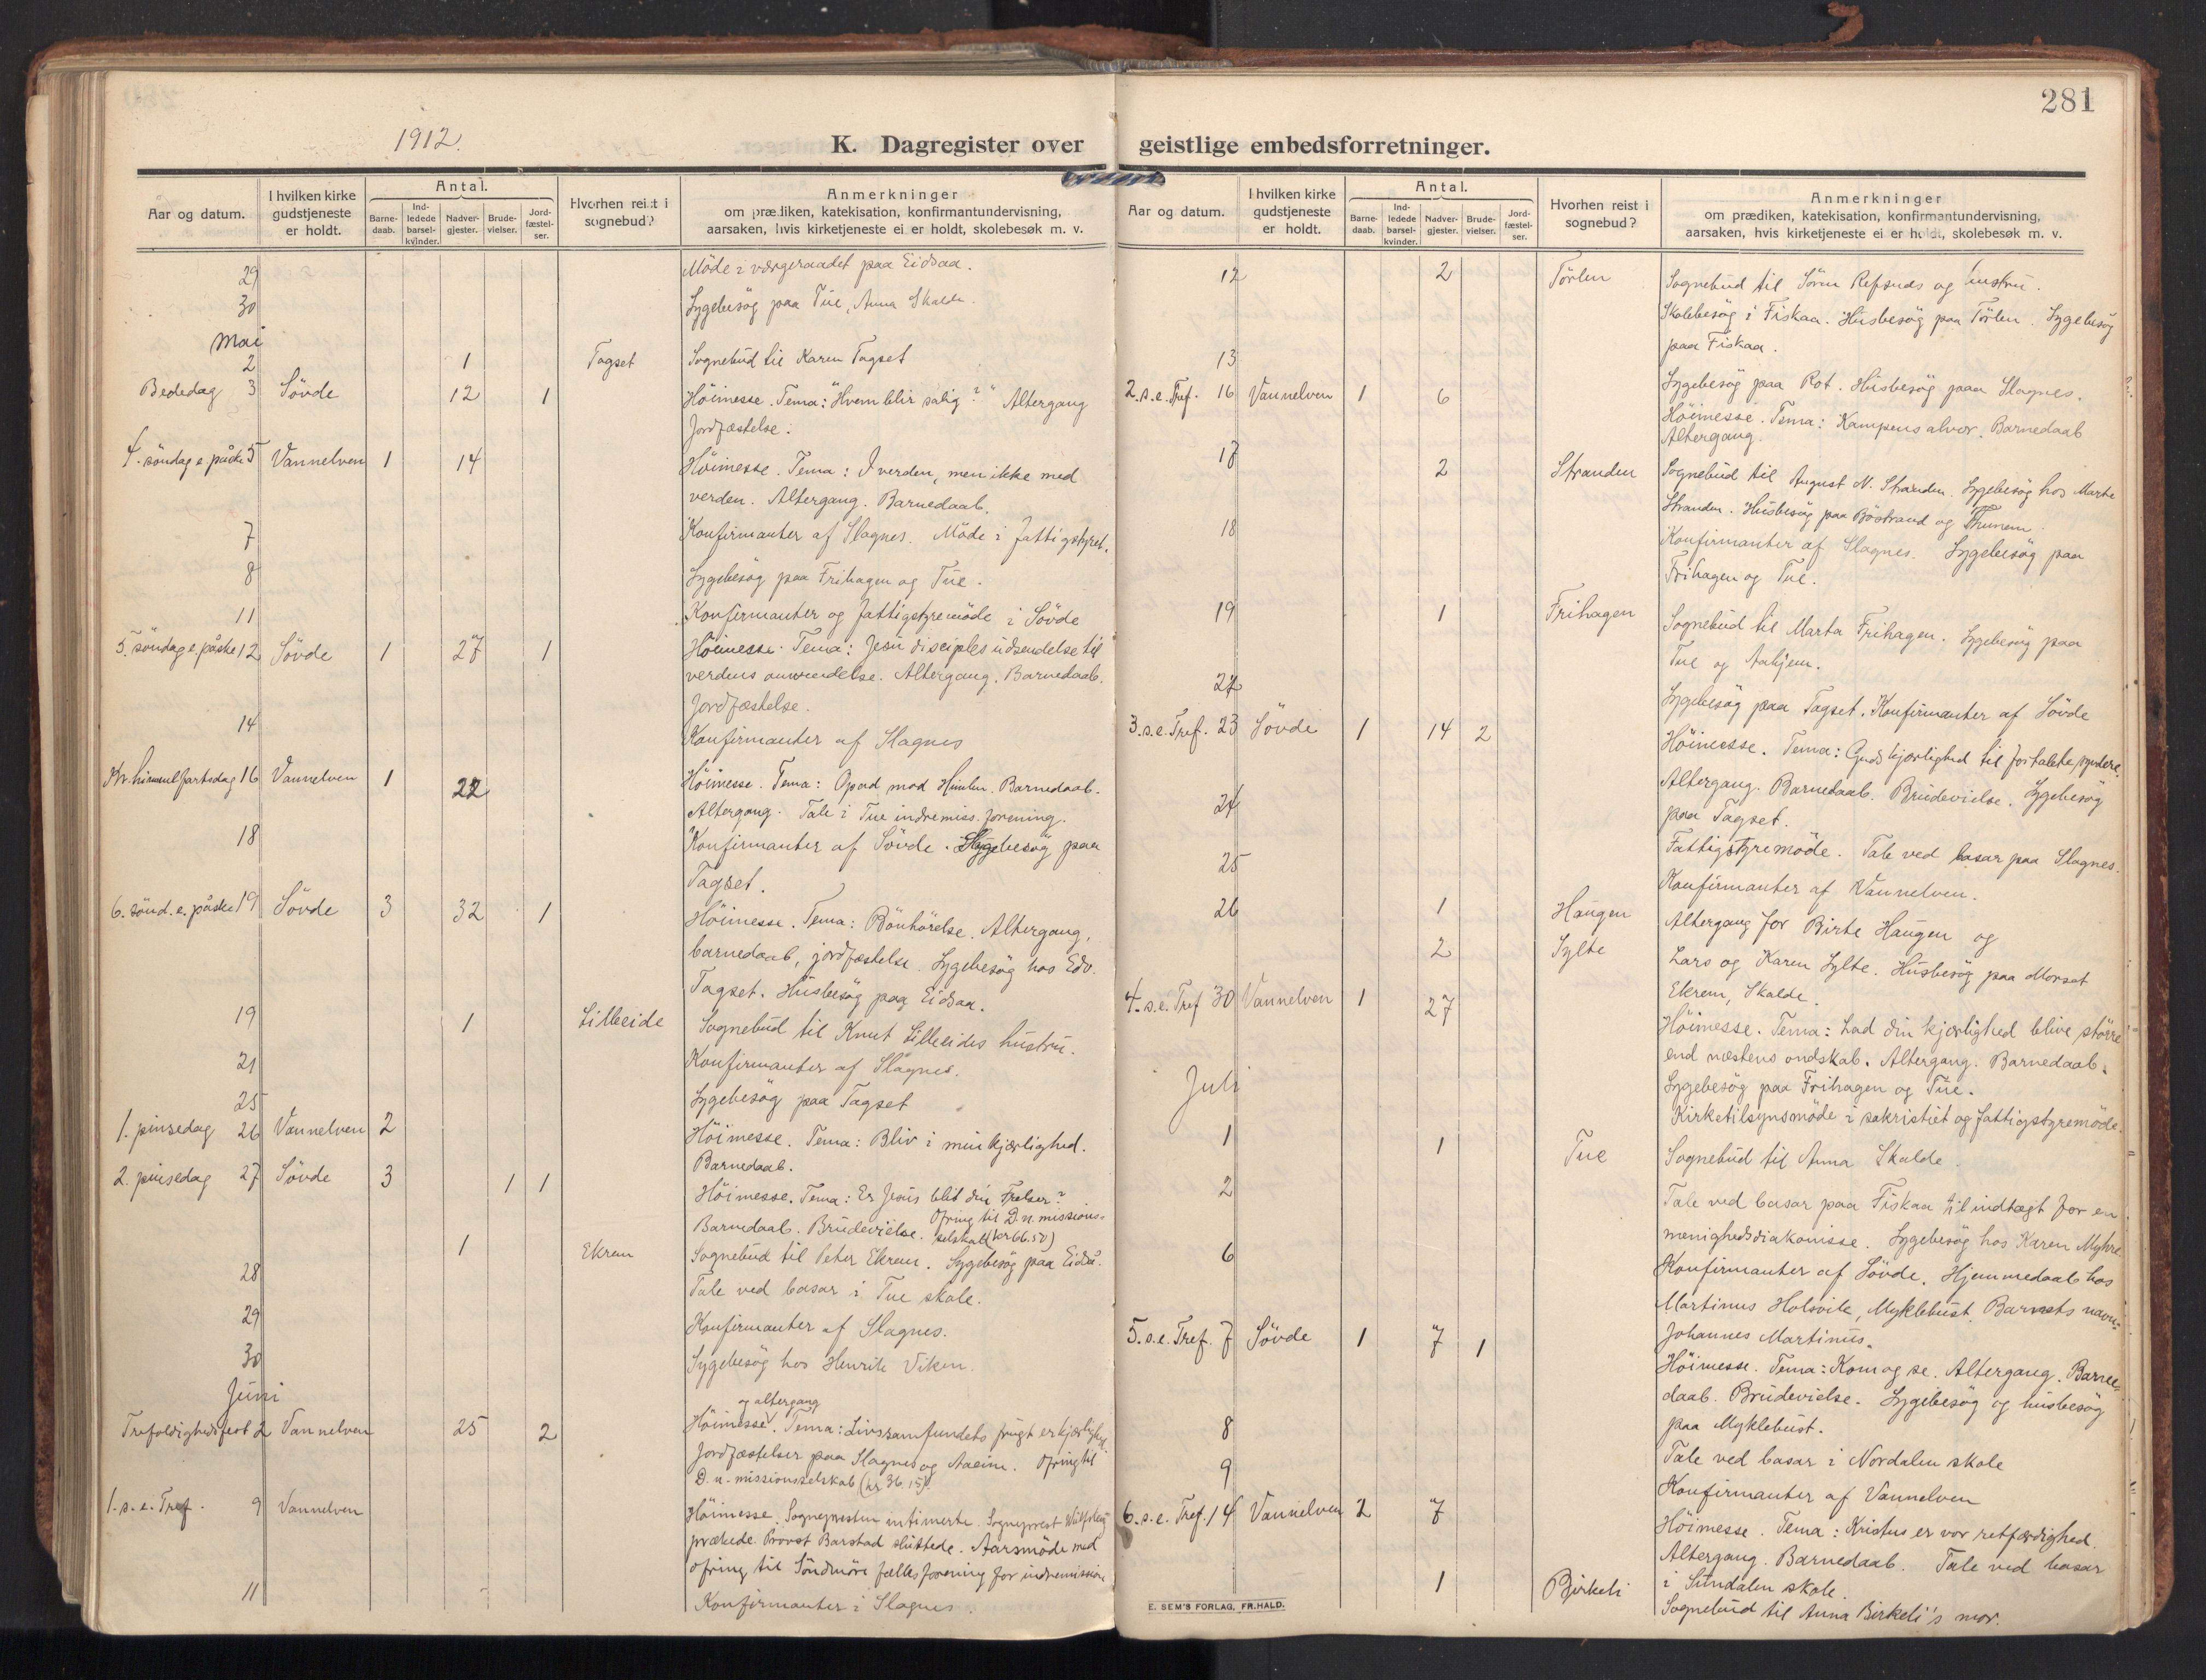 281
1912.
K. Dagregister over geistlige embedsforretninger.
Aar og datum.
I hvilken kirke gudstjeneste er holdt.
Antal.
Barne-daab.
Ind-ledede barsel-kvinder.
Nadver-gjester.
Brude-vielser.
Jord-fæstel-ser.
Hvorhen reist i sognebud?
Anmerkninger
om prædiken, katekisation, konfirmantundervisning,
aarsaken, hvis kirketjeneste ei er holdt, skolebesøk m. v.
29 Möde i værgeraadet paa Eidsaa.
30 Sygebesøg paa Tue, Anna Skalde.
Mai
2 1 Tagset Sognebud til Karen Tagset
Bededag 3 Sövde 12 1 Höimesse. Tema: "Hvem blir salig?" Altergang
Jordfæstelse.
4. söndag e. påske 5 Vannelven 1 14 Höimesse. Tema: I verden, men ikke med
verden. Altergang. Barnedaab.
7 Konfirmanter af Slagnes. Möde i fattigstyret.
8 Sygebesøg paa Frihagen og Tue.
11 Konfirmanter og fattigstyremöde i Sövde
5. söndag e. påske 12 Sövde 1 27 1 Höimesse. Tema: Jesu disciples udsendelse til
verdens omvendelse. Altergang. Barnedaab.
Jordfæstelse.
14 Konfirmanter af Slagnes
Kr. himmelfartsdag 16 Vannelven 1 22 Höimesse. Tema: Opad mod Himlen. Barnedaab.
Altergang. Tale i Tue indremiss. forening.
18 Konfirmanter af Sövde. Sygebesøg paa
Tagset.
6. sönd. e. påske 19 Sövde 3 32 1 Höimesse. Tema: Bönhörelse. Altergang,
barnedaab, jordfæstelse. Sygebesøg hos Edv.
Tagset. Husbesøg paa Eidsaa.
19 1 Lilleeide Sognebud til Knut Lilleeides hustru.
21 Konfirmanter af Slagnes.
25 Sygebesøg paa Tagset
1. pinsedag 26 Vannelven 2 Höimesse. Tema: Bliv i min kjærlighed.
Barnedaab.
2. pinsedag 27 Sövde 3 1 1 Höimesse. Tema: Er Jesus blit din Frelser?
Barnedaab. Brudevielse. Ofring til D. n. missions-
selskab (kr 66.50)
1 Ekrem Sognebud til Peter Ekrem. Sygebesøg paa Eidså.
28 Tale ved basar i Tue skole.
29 Konfirmanter af Slagnes.
30 Sygebesøg hos Henrik Viken.
Juni
og altergang
Trefoldighedsfest 2 Vannelven 25 2 Höimesse. Tema: Livssamfundets frugt er kjærlighed.
Jordfæstelser paa Slagnes og Aaeim. Ofring til
D. n. missionsselskab (kr 36.15).
1. s. e. Tref. 9 Vannelven Höimesse. Sognepresten intimerte. Sogneprest
prækede. Provst Barstad sluttede. Aarsmöde med
ofring til Söndmöre fællesforening for indremission
11 Konfirmanter i Slagnes.
Aar og datum.
I hvilken kirke gudstjeneste er holdt.
Antal.
Barne-daab.
Ind-ledede barsel-kvinder.
Nadver-gjester.
Brude-vielser.
Jord-fæstel-ser.
Hvorhen reist i sognebud?
Anmerkninger
om prædiken, katekisation, konfirmantundervisning,
aarsaken, hvis kirketjeneste ei er holdt, skolebesøk m. v.
12 2 Törlen Sognebud til Sören Refsnes og hustru.
Skolebesøg i Fiskaa. Husbesøg paa Törlen. Sygebesøg
paa Fiskaa.
13 Sygebesøg paa Rot. Husbesøg paa Slagnes.
2. s. e. Tref. 16 Vannelven 1 6 Höimesse. Tema: Kampens alvor. Barnedaab
Altergang.
17 2 Stranden Sognebud til August N. Stranden. Sygebesøg hos Marte
Stranden. Husbesøg paa Böstrand og Thunem.
18 Konfirmanter af Slagnes. Sygebesøg paa
Frihagen og Tue.
19 1 Frihagen Sognebud til Marta Frihagen. Sygebesøg paa
Tue og Aahjem.
22 Sygebesøg paa Tagset. Konfirmanter af Sövde
3. s. e. Tref. 23 Sövde 1 14 2 Höimesse. Tema: Guds kjærlighed til fortabte syndere.
Altergang. Barnedaab. Brudevielse. Sygebesøg
paa Tagset.
24 Fattigstyremöde. Tale ved basar paa Slagnes.
25 Konfirmanter af Vannelven.
26 1 Haugen Altergang for Birte Haugen og
2 Sylte Lars og Karen Sylte. Husbesøg paa Morset
Ekrem, Skalde.
4. s. e. Tref 30 Vannelven 1 27 Höimesse. Tema: Lad din kjærlighed blive större
end næstens ondskab. Altergang. Barnedaab.
Sygebesøg paa Frihagen og Tue.
Kirketilsynsmöde i sakristiet og fattigstyremöde.
Juli
1 1 Tue Sognebud til Anna Skalde.
2 Tale ved basar paa Fiskaa til indtægt for en
menighedsdiakonisse. Sygebesøg hos Karen Myhre
6 Konfirmanter af Sövde. Hjemmedaab hos
Martinus Holsvik, Myklebust. Barnets navn:
Johannes Martinus.
5. s. e. Tref. 7 Sövde 1 7 1 Höimesse. Tema: Kom og se. Altergang. Barne-
daab. Brudevielse. Sygebesøg og husbesøg
paa Myklebust.
8 Tale ved basar i Nordalen skole
9 Konfirmanter af Vannelven
6. s. e. Tref. 14 Vannelven 2 7 Höimesse. Tema: Kristus er vor retfærdighed.
Altergang. Barnedaab. Tale ved basar
i Sundalen skole.
1 Birkeli Sognebud til Anna Birkeli's mor.
E. SEM'S FORLAG, FR.HALD.